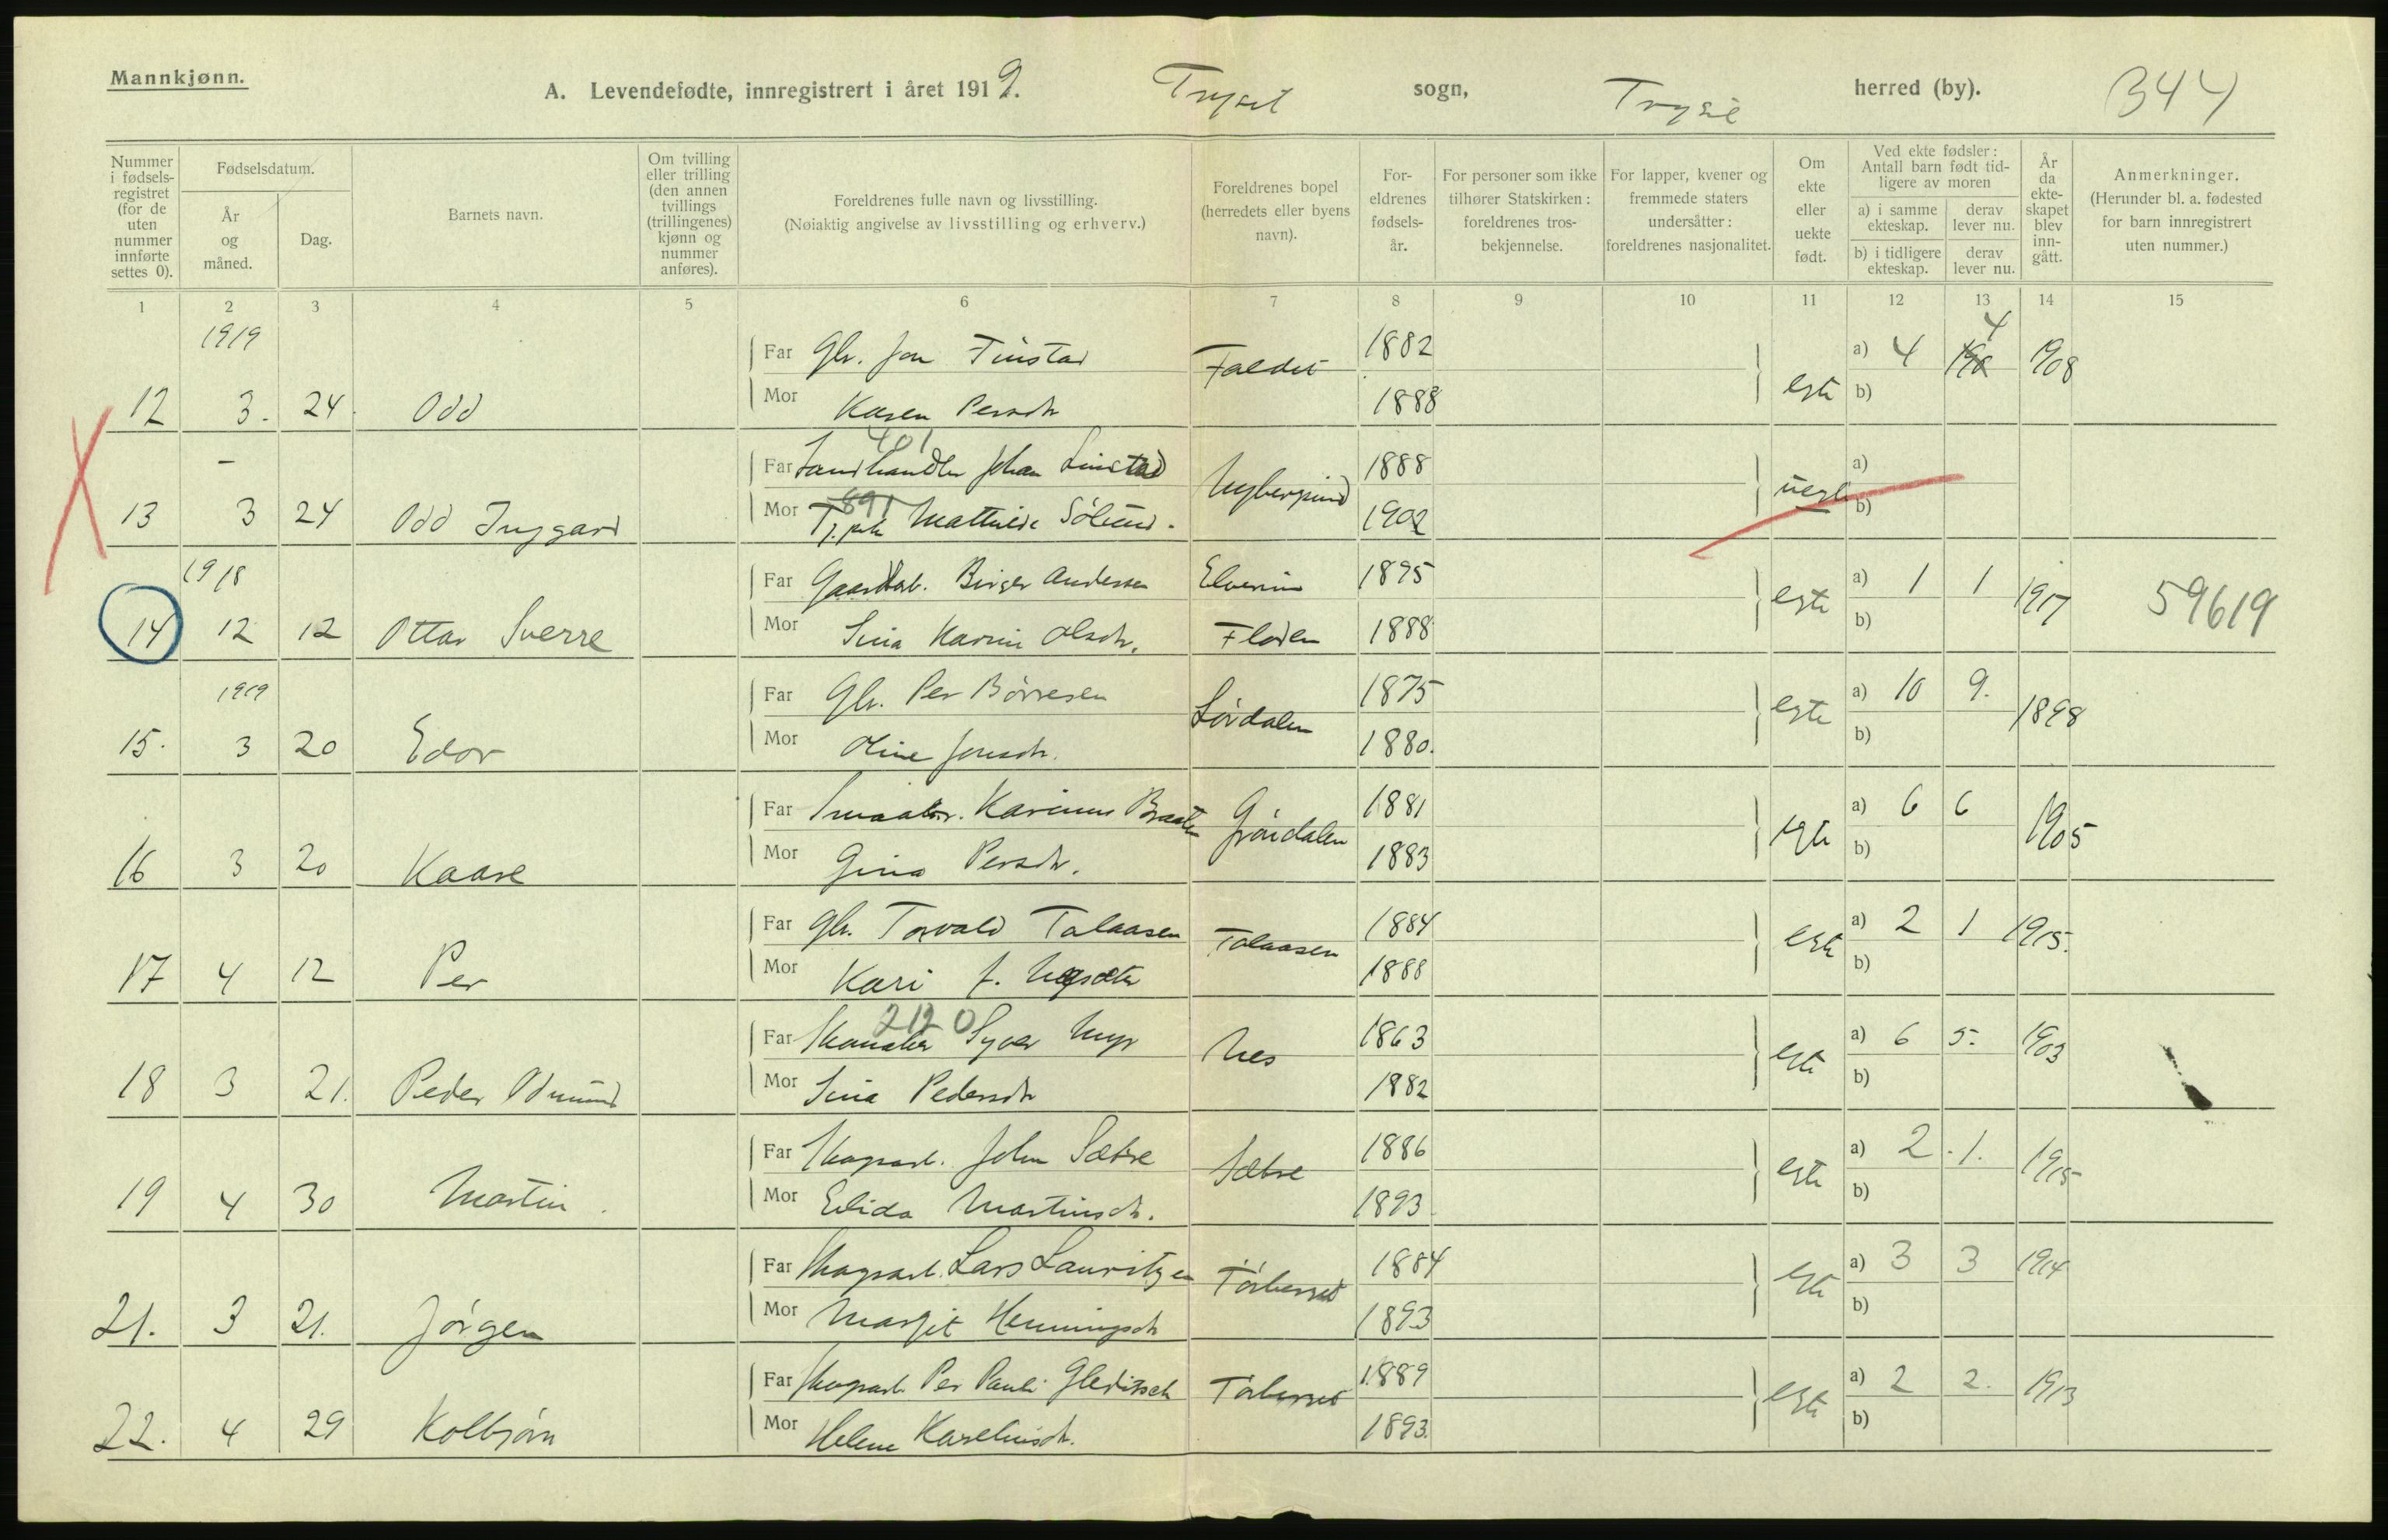 Mannkjønn.
A. Levendefødte, innregistrert i året 1919. Trysil sogn, Trysil herred (by). 344
Nummer i fødselsregistret (for de uten nummer innførte settes 0).
Fødselsdatum.
År og måned.
Dag.
Barnets navn.
Om tvilling eller trilling (den annen tvillings (trillingenes) kjønn og nummer anføres).
Foreldrenes fulle navn og livsstilling.
(Nøiaktig angivelse av livsstilling og erhverv.)
Foreldrenes bopel (herredets eller byens navn).
Foreldrenes fødselsår.
For personer som ikke tilhører Statskirken: foreldrenes trosbekjennelse.
For lapper, kvener og fremmede staters undersåtter: foreldrenes nasjonalitet.
Om ekte eller uekte født.
Ved ekte fødsler: Antall barn født tidligere av moren
a) i samme ekteskap. derav lever nu.
b) i tidligere ekteskap. derav lever nu.
År da ekteskapet blev inngått.
Anmerkninger.
(Herunder bl. a. fødested for barn innregistrert uten nummer.)
1 2 3 4 5 6 7 8 9 10 11 12 13 14 15
1919 Far Gbr. Jon Finstad Faldet 1882 a) 4 4 1908
12 3. 24. Odd Mor Karen Persdtr 1888 egte b)
401
- Far Landhandler Johan Linstad Nybergsund 1888 uegte a)
891
13 3 24 Odd Inggard Mor Tj.pike Mathilde Sølund. 1902 b)
1918 Far Gaardbr. Birger Andersen Elverum 1895 egte a) 1 1 1917 59619
14 12 12 Ottar Sverre Mor Lina Karin Olsdtr. Floden 1888 b)
1919 Far Gbr. Per Børresen Lørdalen 1875 egte a) 10 9. 1898
15. 3 20 Edor Mor Oline Jonsdtr. 1880. b)
Far Smaabr. Karinus Braaten Grøndalen 1881 egte a) 6 6 1905
16 3 20 Kaare Mor Gina Persdtr. 1883 b)
Far Gbr. Torvald Tolaasen Tolaasen 1884 egte a) 2 1 1915.
17 4 12 Per Mor Kari J. 1888 b)
2120
Far Skomaker Syver Myr Nes 1863 egte a) 6 5. 1903
18 3 21. Peder Odmund Mor Lina Pedersdtr 1882 b)
Far Skogsarb. John Sætre Sætre 1886 egte a) 2 1. 1915
19 4 30 Martin Mor Elida Martinsdtr. 1893 b)
Far Skogsarb. Lars Lauritzen Tørberget 1884 egte a) 3 3 1914
21. 3 21. Jørgen Mor Margit Henningsdtr 1893 b)
Far Skogsarb. Per Pauli Gleditsch Tørberget 1889 egte a) 2 2. 1913
22. 4 29 Kolbjørn Mor Helene Kareliusdtr. 1893. b)